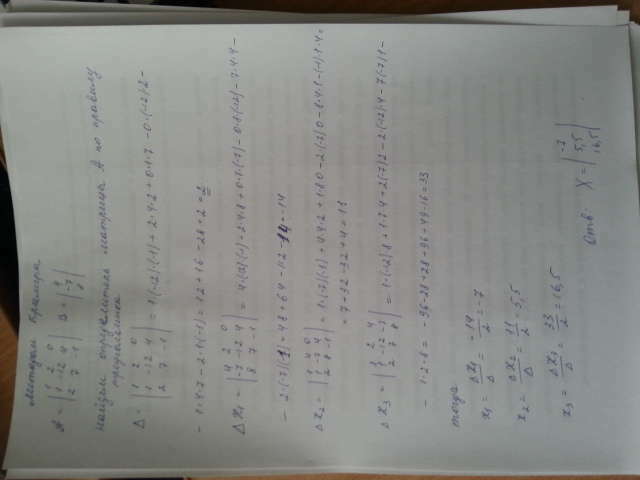 Методом Крамера
A = |1 2 0; 1 -12 4; 2 7 -1| B = |4; -7; 8|
Найдем определитель матрицы A по правилу
треугольника
Δ = |1 2 0; 1 -12 4; 2 7 -1| = 1(-12)(-1) + 2·4·2 + 0·1·7 - 0·(-12)·2 -
- 1·4·7 - 2·1(-1) = 12 + 16 - 28 + 2 = 2
Δx₁ = |4 2 0; -7 -12 4; 8 7 -1| = 4(-12)(-1) + 2·4·8 + 0·7·(-7) - 0·8(-12) - 7·4·4 -
- 2(-7)(-1) = 48 + 64 - 112 - 14 = -14
Δx₂ = |1 4 0; 1 -7 4; 2 8 -1| = 1·(-7)(-1) + 4·4·2 + 1·8·0 - 2·(-7)0 - 8·4·1 - (-1)·1·4 =
= 7 + 32 - 32 + 4 = 11
Δx₃ = |1 2 4; 1 -12 -7; 2 7 8| = 1·(-12)8 + 1·7·4 + 2(-7)2 - 2·(-12)·4 - 7(-7)1 -
- 1·2·8 = -96 - 28 + 28 + 96 + 49 - 16 = 33
тогда
x₁ = Δx₁/Δ = -14/2 = -7
x₂ = Δx₂/Δ = 11/2 = 5,5
x₃ = Δx₃/Δ = 33/2 = 16,5
Отв: X = |-7; 5,5; 16,5|